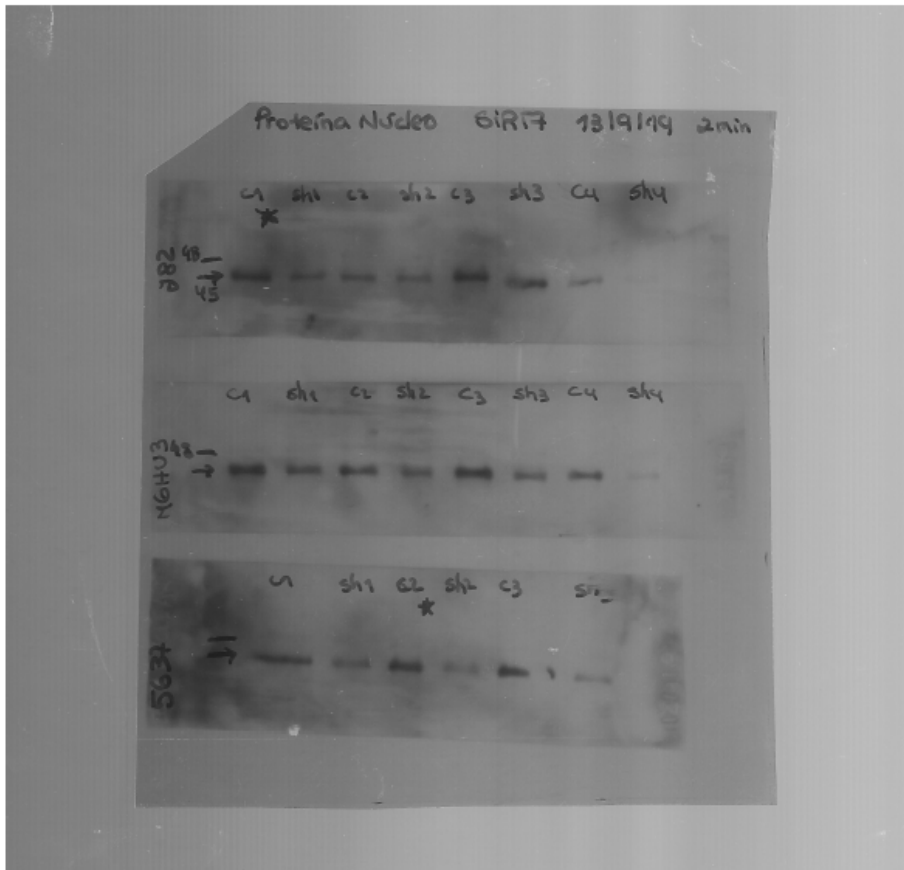 Proteína Núcleo SiRT7 13/9/19 2min
C1 sh1 C2 sh2 C3 sh3 C4 sh4
J82
48
45
C1 sh1 C2 sh2 C3 sh3 C4 sh4
48
C1 sh1 C2 sh2 C3
5637